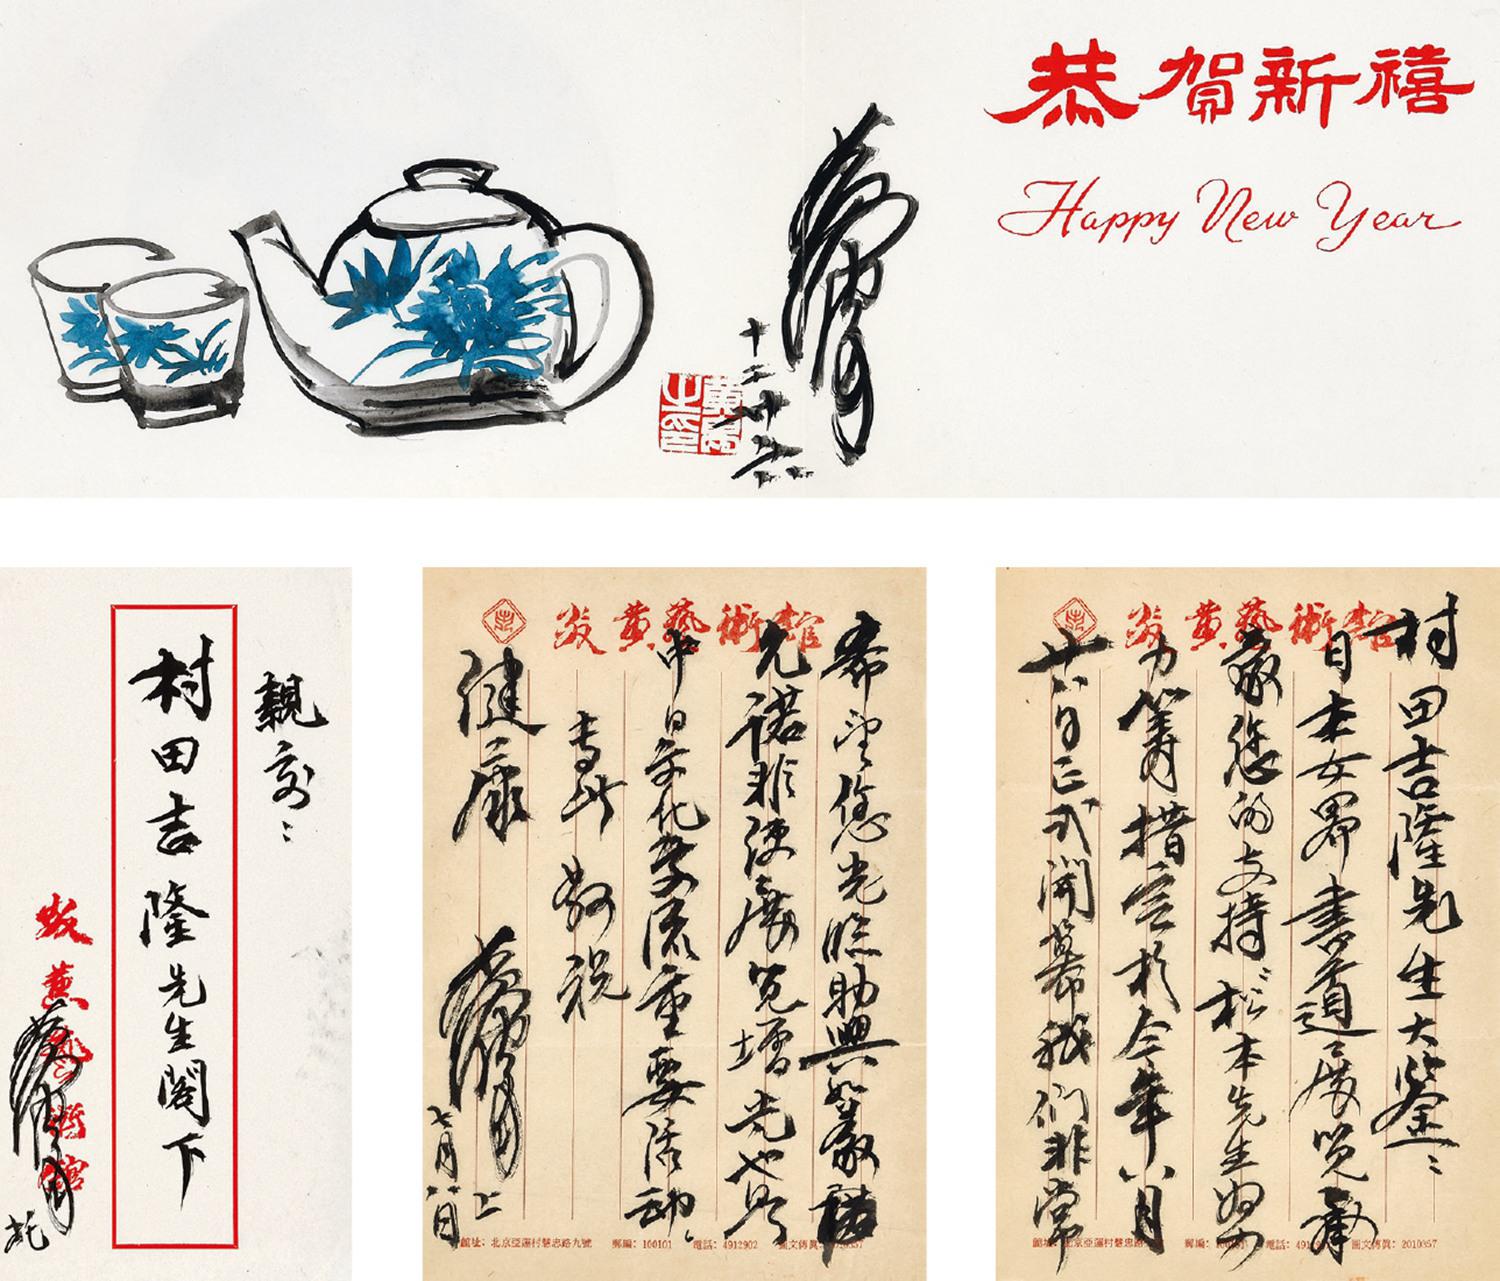 恭賀新禧
Happy New Year
黄胄
十二廿六
黄胄之印
親交
村田吉隆先生閣下
炎黄藝術館
黄胄
托
炎黄藝術館
村田吉隆先生大鑒:
日本女界書道展览承
蒙您的支持、松本先生努
力籌措定於今年八月
廿八日正式開幕我們非常
館址：北京亞運村慧忠路九號 郵編：100101 電話：4912902 圖文傳真：2010357
炎黄藝術館
希望您光臨助興如蒙諾
允諾非使展览增光也是
中日文化交流重要活動。
專此 敬祝
健康
黄胄 上
七月八日
館址：北京亞運村慧忠路九號 郵編：100101 電話：4912902 圖文傳真：2010357